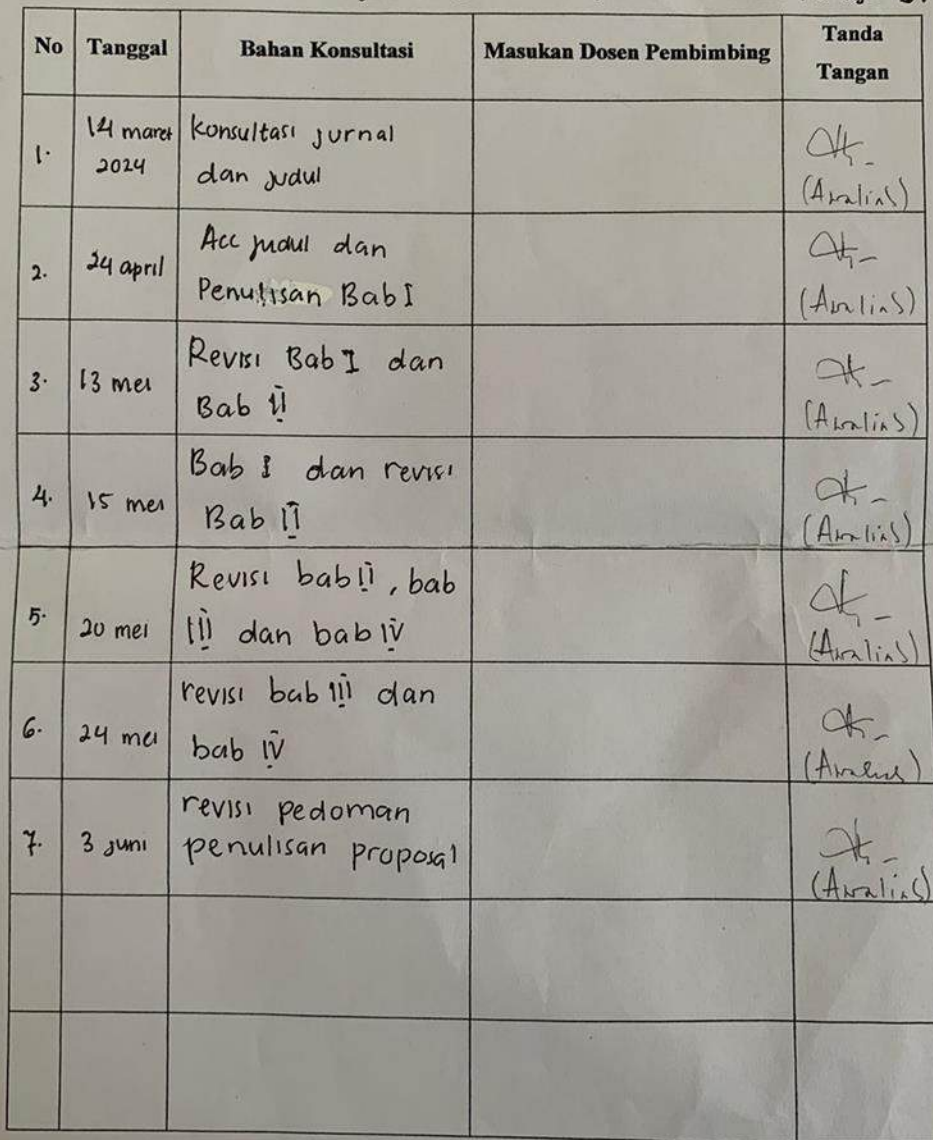 No Tanggal Bahan Konsultasi Masukan Dosen Pembimbing Tanda Tangan
1. 14 maret 2024 Konsultasi jurnal
dan judul
2. 24 april Acc judul dan
Penulisan Bab I
3. 13 mei Revisi Bab I dan
Bab II
4. 15 mei Bab I dan revisi
Bab II
5. 20 mei Revisi bab II, bab
III dan bab IV
6. 24 mei revisi bab III dan
bab IV
7. 3 juni revisi pedoman
penulisan proposal